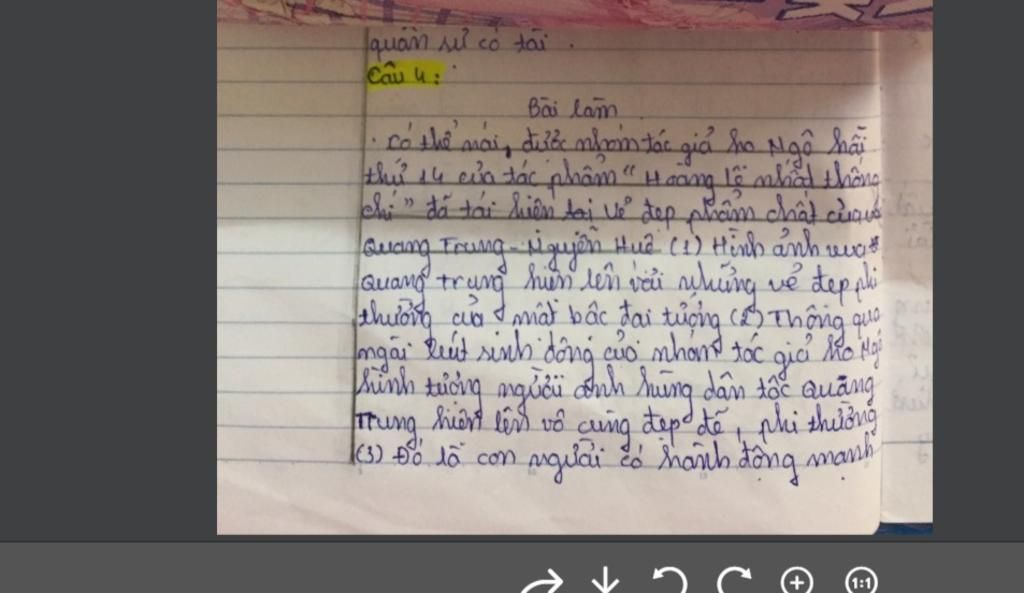 quân sư có tài .
Câu 4:
Bài làm
Có thể nói, được nhóm tác giả họ Ngô hồi
thứ 14 của tác phẩm " Hoàng lê nhất thống
chí " đã tái hiện lại vẻ đẹp phẩm chất của
Quang Trung - Nguyễn Huệ (1) Hình ảnh vua
quang trung hiện lên với những vẻ đẹp phi
thường của một bậc đại tướng (2) Thông qua
ngòi bút sinh động của nhóm tác giả họ Ngô
hình tượng người anh hùng dân tộc Quang
Trung hiện lên vô cùng đẹp đẽ, phi thường
(3) Đó là con người có hành động mạnh
1:1